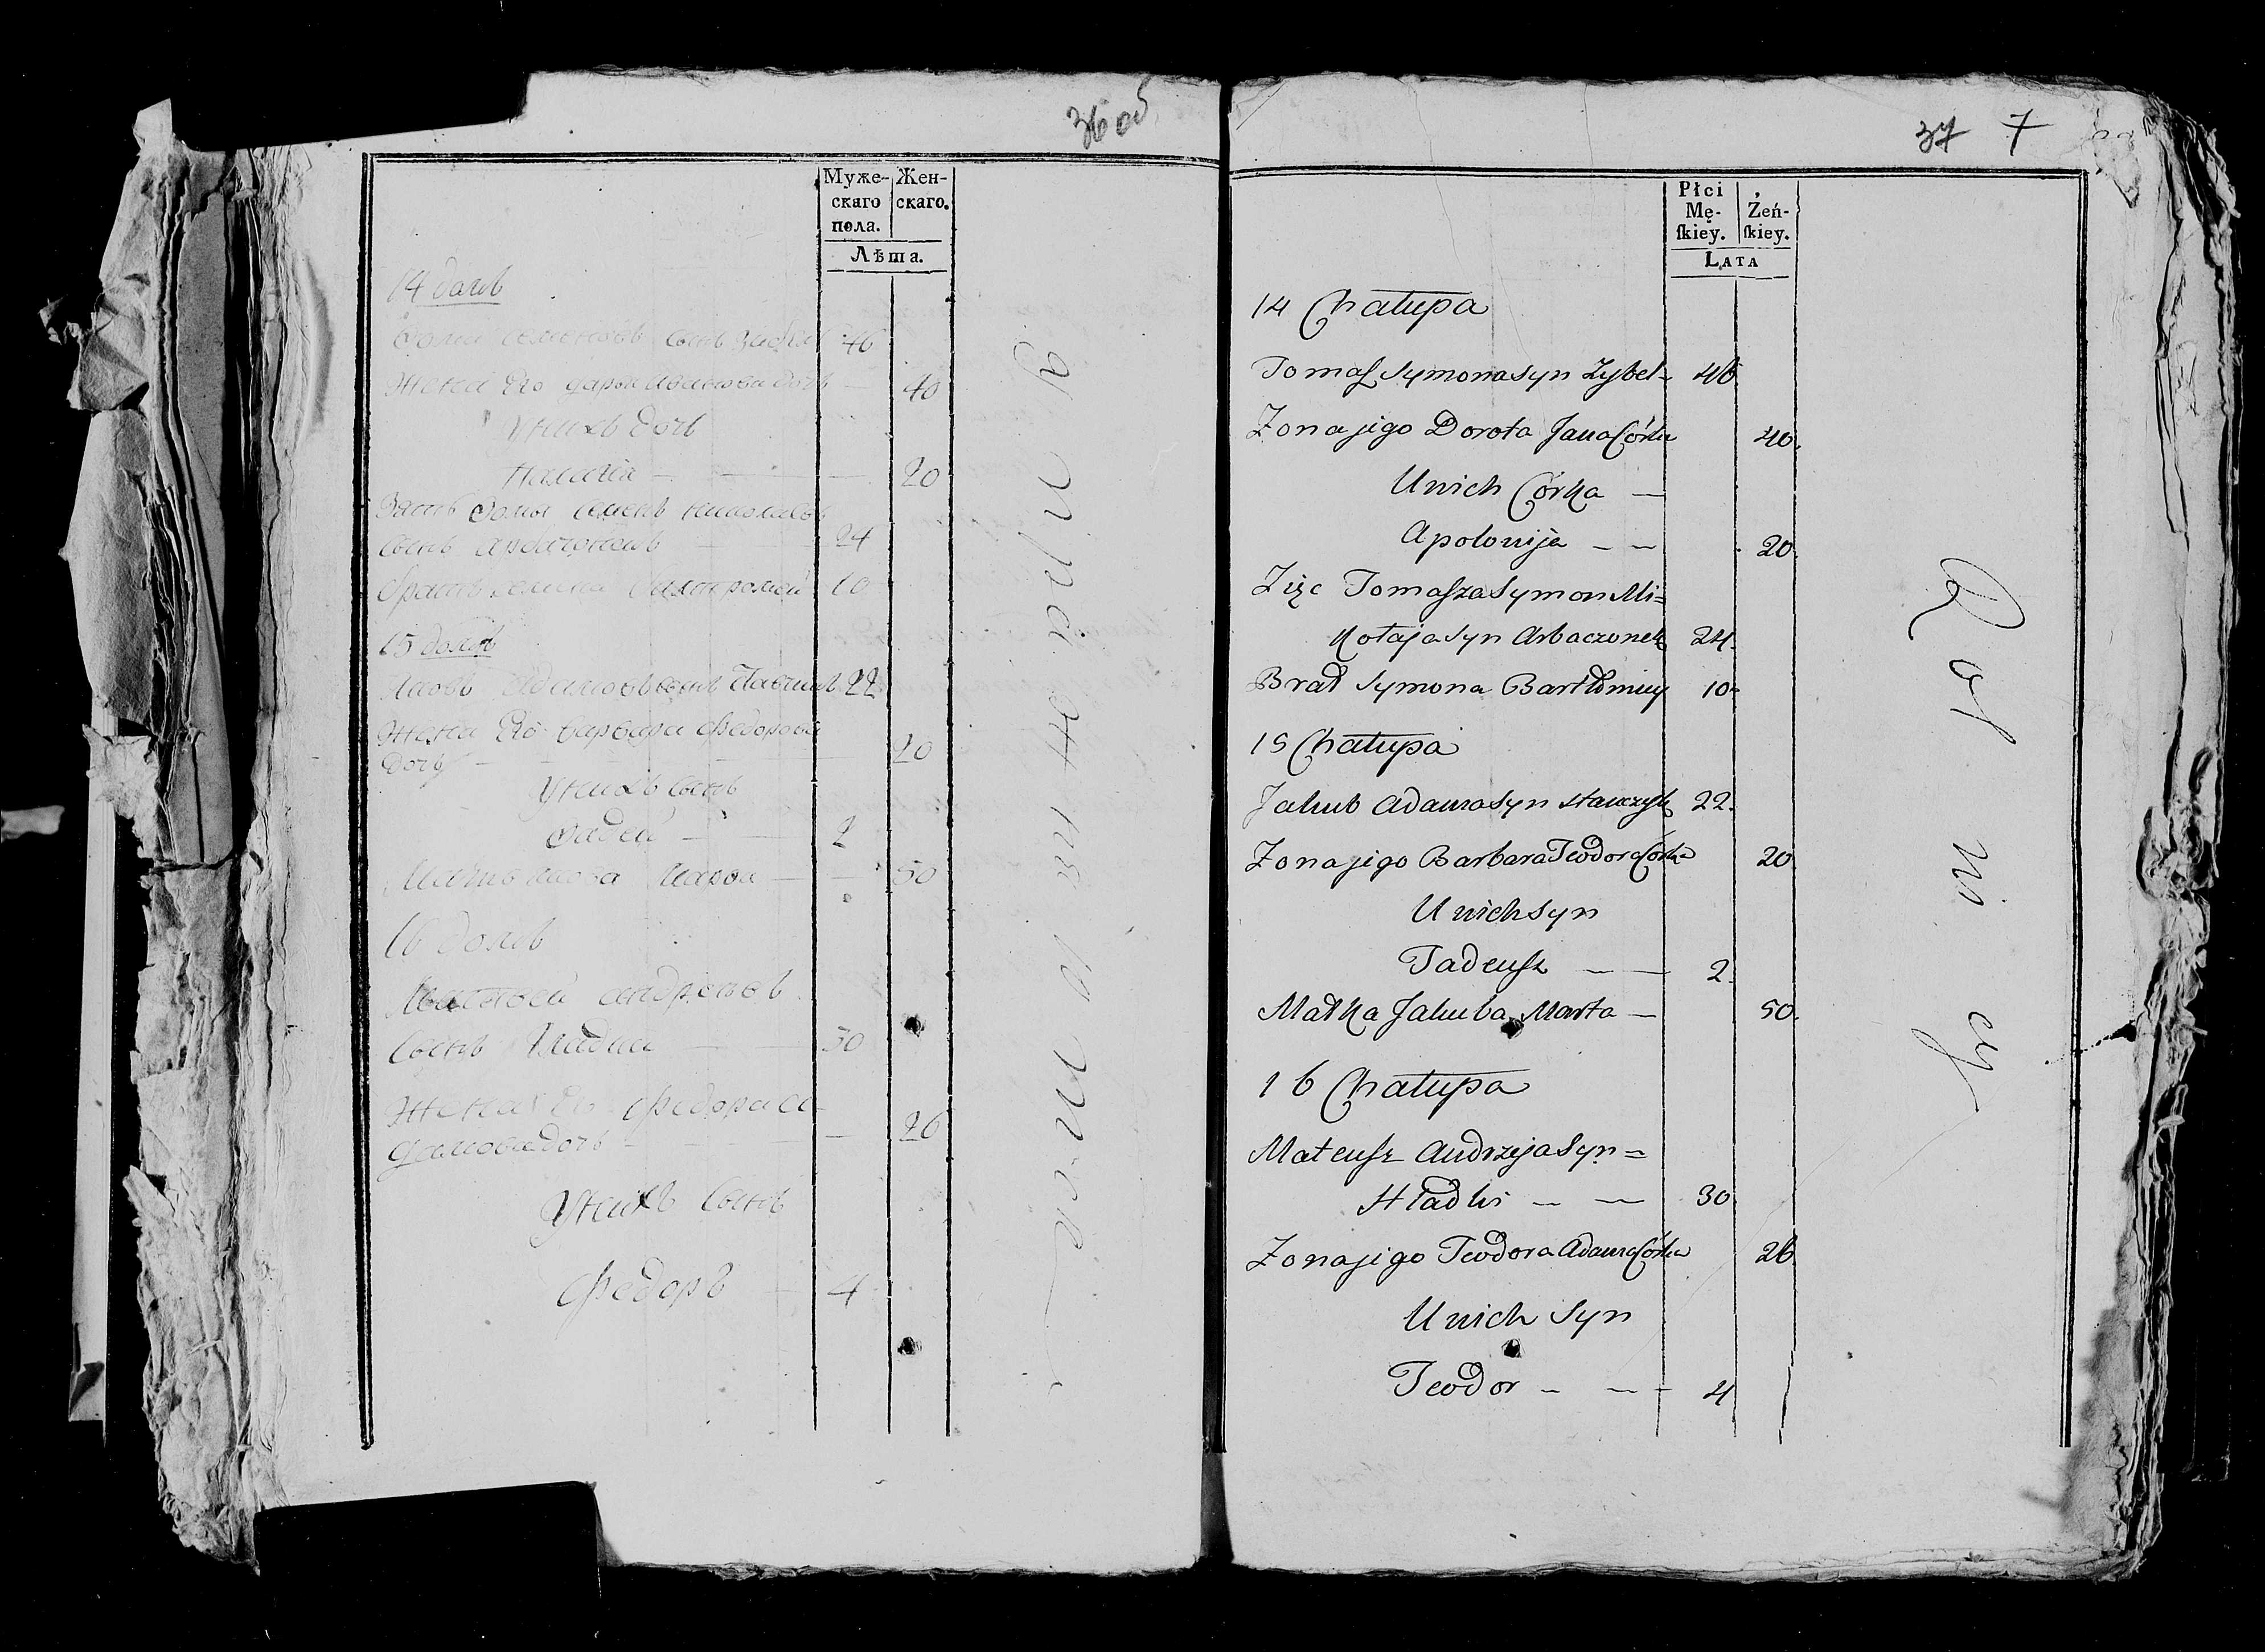 36 об
Муже-
скаго
пола.
Жен-
скаго.
Лѣта.
14 домъ
сынъ 46
Жена Его дочь 40
У нихъ дочь
20
Зять Фомы Семенъ николаевъ
сынъ 24
братъ 10
15 домъ
адамовъ сынъ 22
Жена Его варвара федорова
дочь 20
У нихъ сынъ
Фадей — 2
Мать Марфа — 50
16 домъ
Матвей андреевъ
сынъ Гладки 30
Жена Его федора а-
дамова дочь 26
У нихъ Сынъ
Федоръ — 4
37 7
Płci
Mę-
ſkiey.
Żeń-
ſkiey.
LATA
14 Chałupa
Tomaſz Symona Syn Zybel - 46
Zona jigo Dorota Jana Córka 40.
U nich Córka —
Apolonija — — 20.
Zięc Tomaſza Symon Mi=
kołaja Syn Arbaczonek 24.
Brat Symona Bartłomiey 10-
15 Chałupa
Jakub Adama Syn Stanczyk 22.
Zona jigo Barbara Teodora Córka 20.
U nich Syn
Tadeuſz — — 2.
Matka Jakuba Marta — 50.
16 Chałupa
Mateuſz Andrzeja Syn =
Hładki — — 30
Zona jigo Teodora Adama Córka 26
U nich Syn
Teodor — — 4
Rolnicy